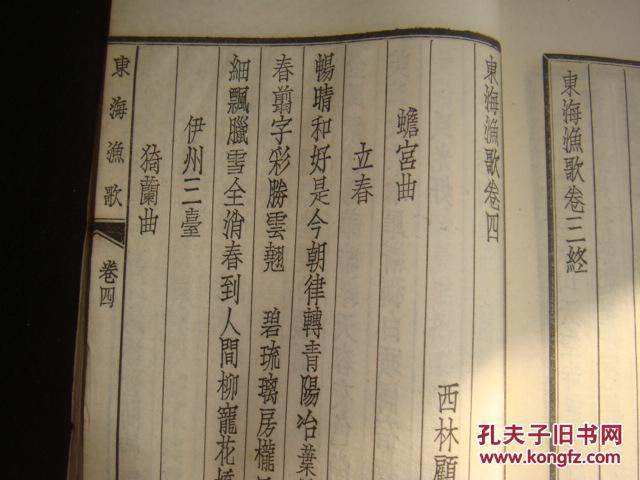 東海漁歌卷三終
東海漁歌卷四
西林顧
蟾宮曲
立春
暢晴和好是今朝律轉青陽冶葉
春翦字彩勝雲翹 碧琉璃房櫳
細飄臘雪全消春到人間柳寵花嬌
伊州三臺
猗蘭曲
東海漁歌
卷四
孔夫子旧书网
www.kongfz.com